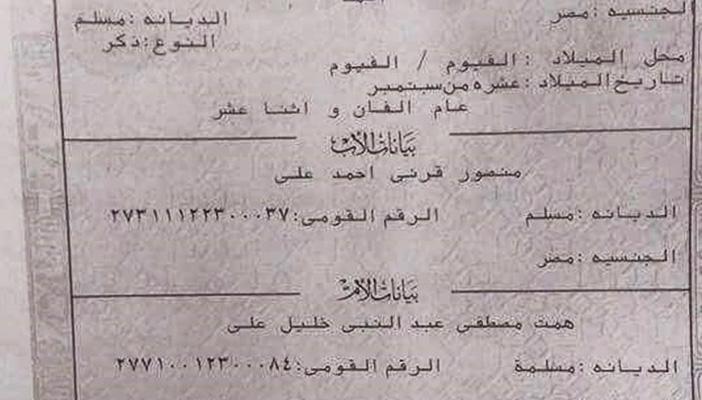 لجنسيه : مصر الديانه : مسلم
النوع : ذكر
محل الميلاد : الفيوم / الفيوم
تاريخ الميلاد : عشرة من سبتمبر
عام الفان و اثنا عشر
بيانات الأب
منصور قرنى احمد على
الديانه : مسلم الرقم القومى : ٢٧٣١١١٢٢٣٠٠٠٣٧
الجنسيه : مصر
بيانات الأم
همت مصطفى عبد النبى خليل على
الديانه : مسلمة الرقم القومى : ٢٧٧١٠٠١٢٣٠٠٠٨٤